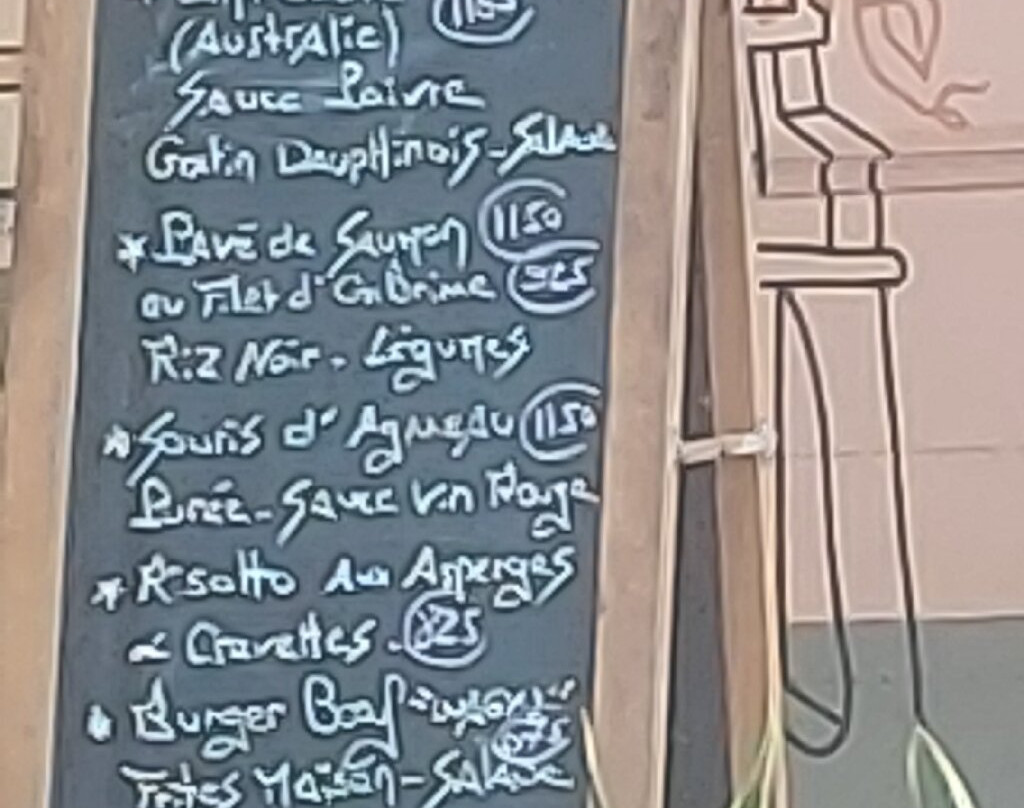 1150
(Australie)
Sauce Poivre
Gratin Dauphinois - Salade
* Pavé de Saumon 1150
ou Filet d' 925
Riz Noir - Légumes
* Souris d'Agneau 1150
Purée - Sauce Vin Rouge
* Risotto Aux Asperges
& Crevettes - 825
* Burger Bœuf
Frites Maison - Salade